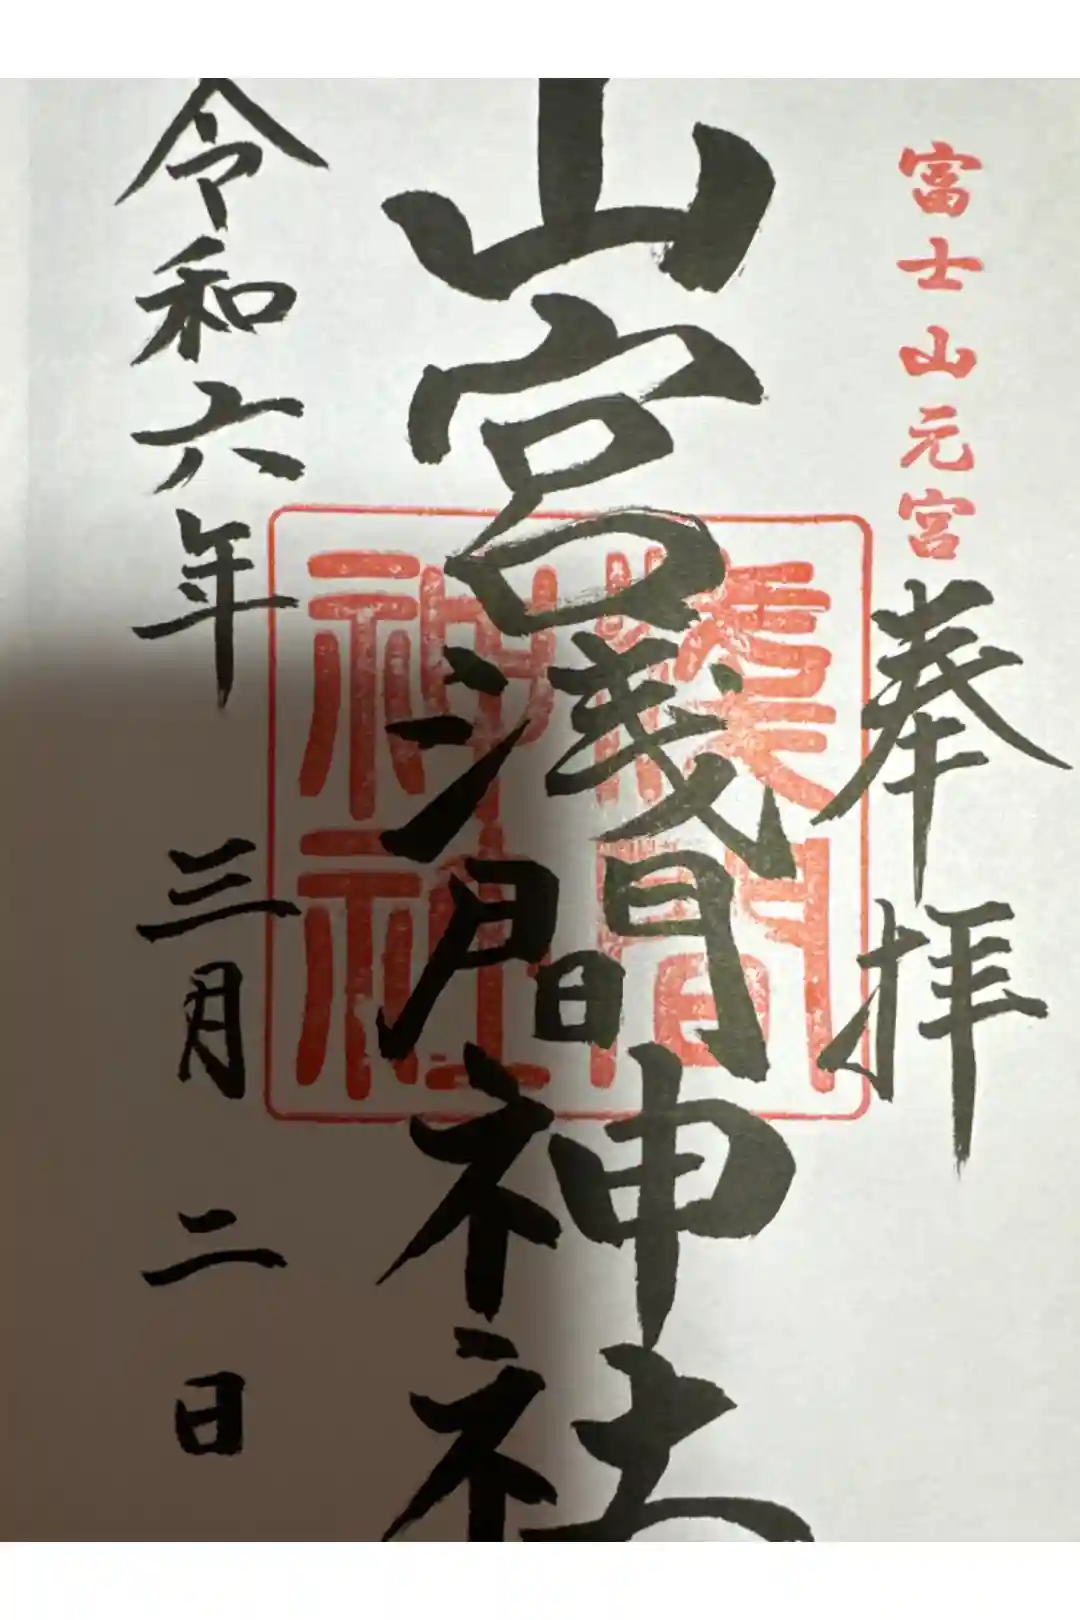 富士山元宮
奉拝
山宮浅間神社
浅間
神社
令和六年三月二日